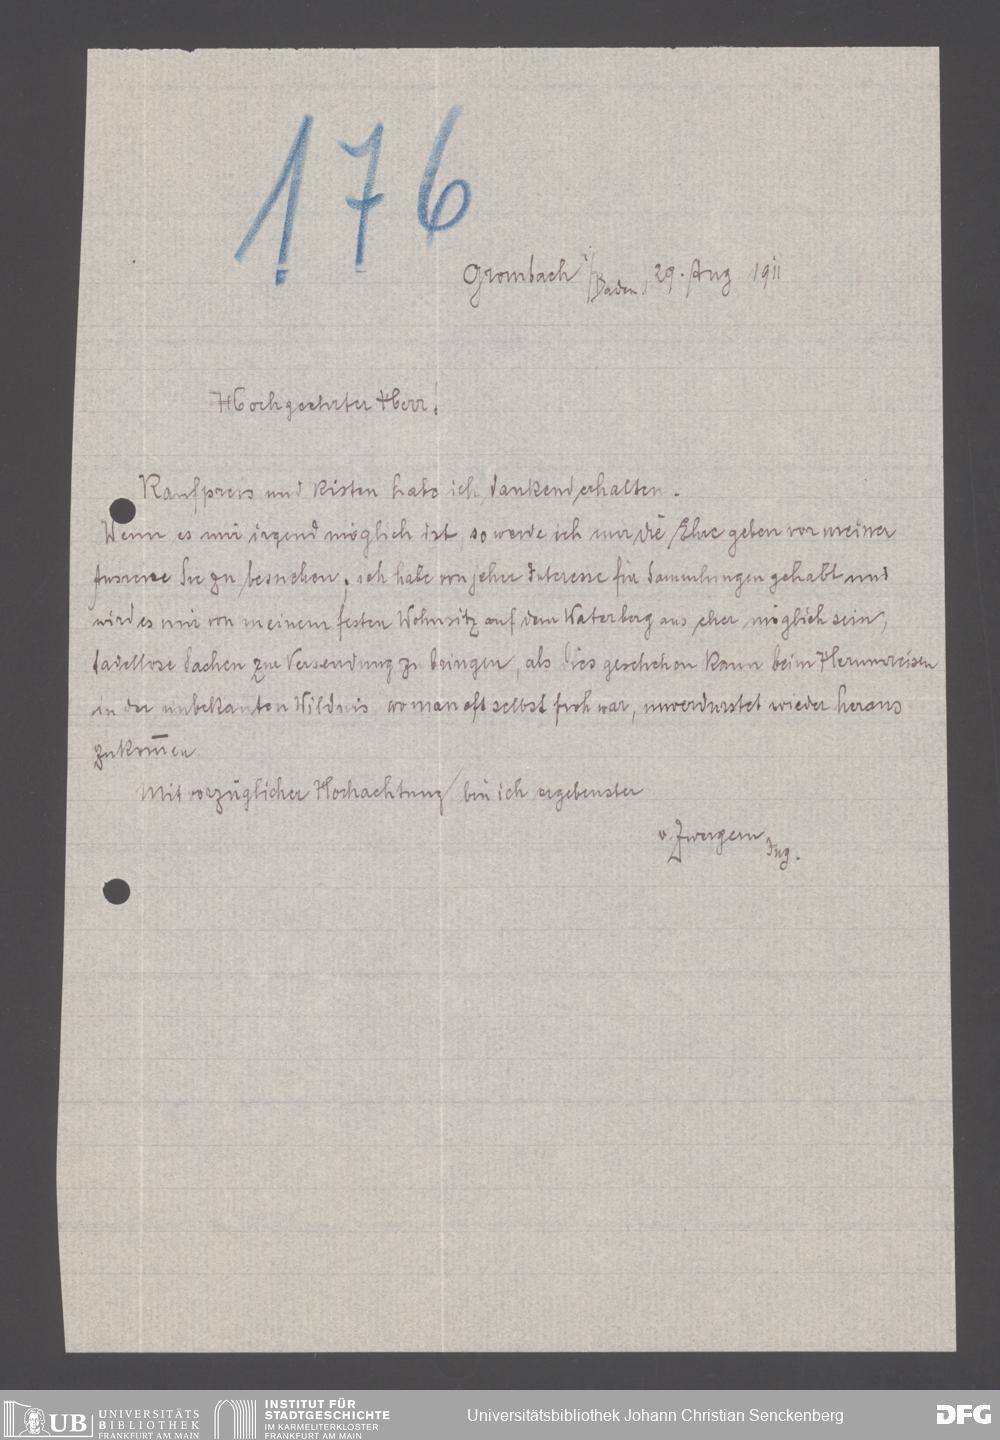 176
Grombach i/Baden, 29. Aug 1911
Hochgeehrter Herr!
Kaufpreis und Kisten habe ich dankend erhalten.
Wenn es mir irgend möglich ist, so werde ich mir die Ehre geben vor meiner
Ausreise Sie zu besuchen; ich habe von jeher Interesse für Sammlungen gehabt und
wird es mir von meinem festen Wohnsitz auf dem Waterberg aus eher möglich sein,
tadellose Sachen zur Versendung zu bringen, als dies geschehen kann beim Herumreisen
in der unbekannten Wildnis, wo man oft selbst froh war, unverdurstet wieder heraus
zukom̅en
Mit vorzüglicher Hochachtung bin ich ergebenster
v. Zwergern Ing.
UB UNIVERSITÄTS
BIBLIOTHEK
FRANKFURT AM MAIN
INSTITUT FÜR
STADTGESCHICHTE
IM KARMELITERKLOSTER
FRANKFURT AM MAIN
Universitätsbibliothek Johann Christian Senckenberg
DFG